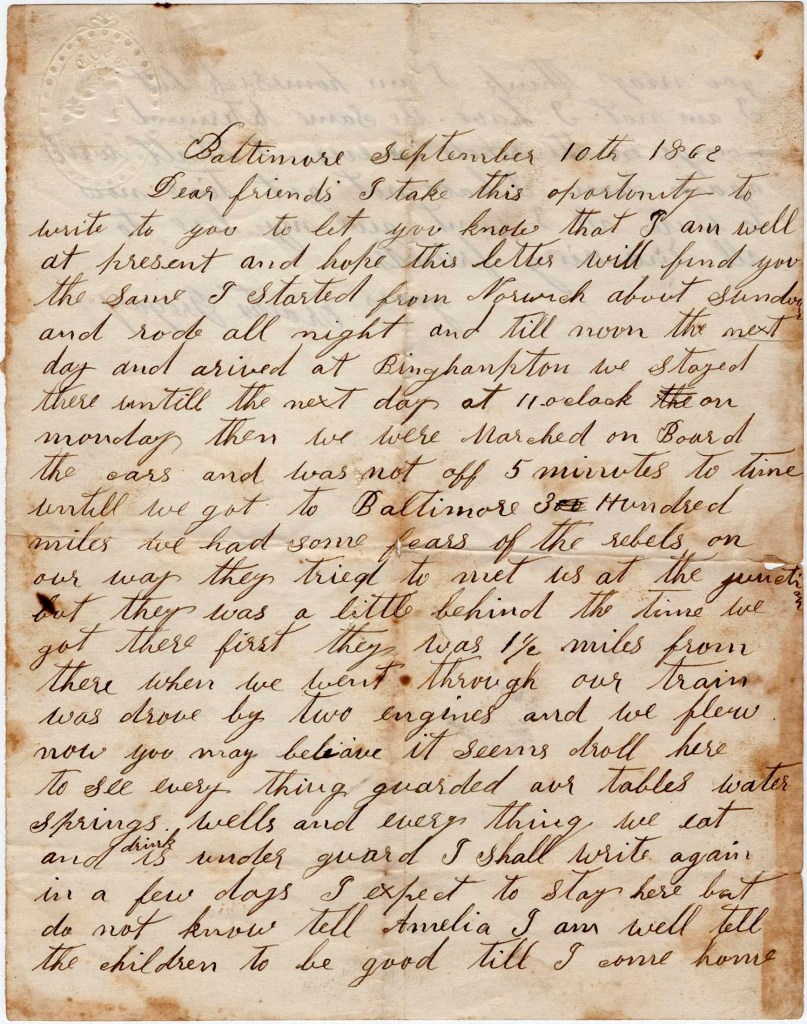 Baltimore September 10th 1862
Dear friends I take this oportunity to
write to you to let you know that I am well
at present and hope this letter will find you
the same I started from Norwich about sundow
and rode all night and till noon the next
day and arived at Binghampton we stayed
there untill the next day at 11 oclock the on
monday then we were Marched on Board
the cars and was not off 5 minutes to time
untill we got to Baltimore 300 Hundred
miles we had some fears of the rebels on
our way they tried to met us at the junction
but they was a little behind the time we
got there first they was 1 1/2 miles from
there when we went through our train
was drove by two engines and we flew
now you may beliave it seems droll here
to see every thing guarded our tables water
springs wells and every thing we eat
and drink is under guard I shall write again
in a few days I expect to stay here but
do not know tell Amelia I am well tell
the children to be good till I come home